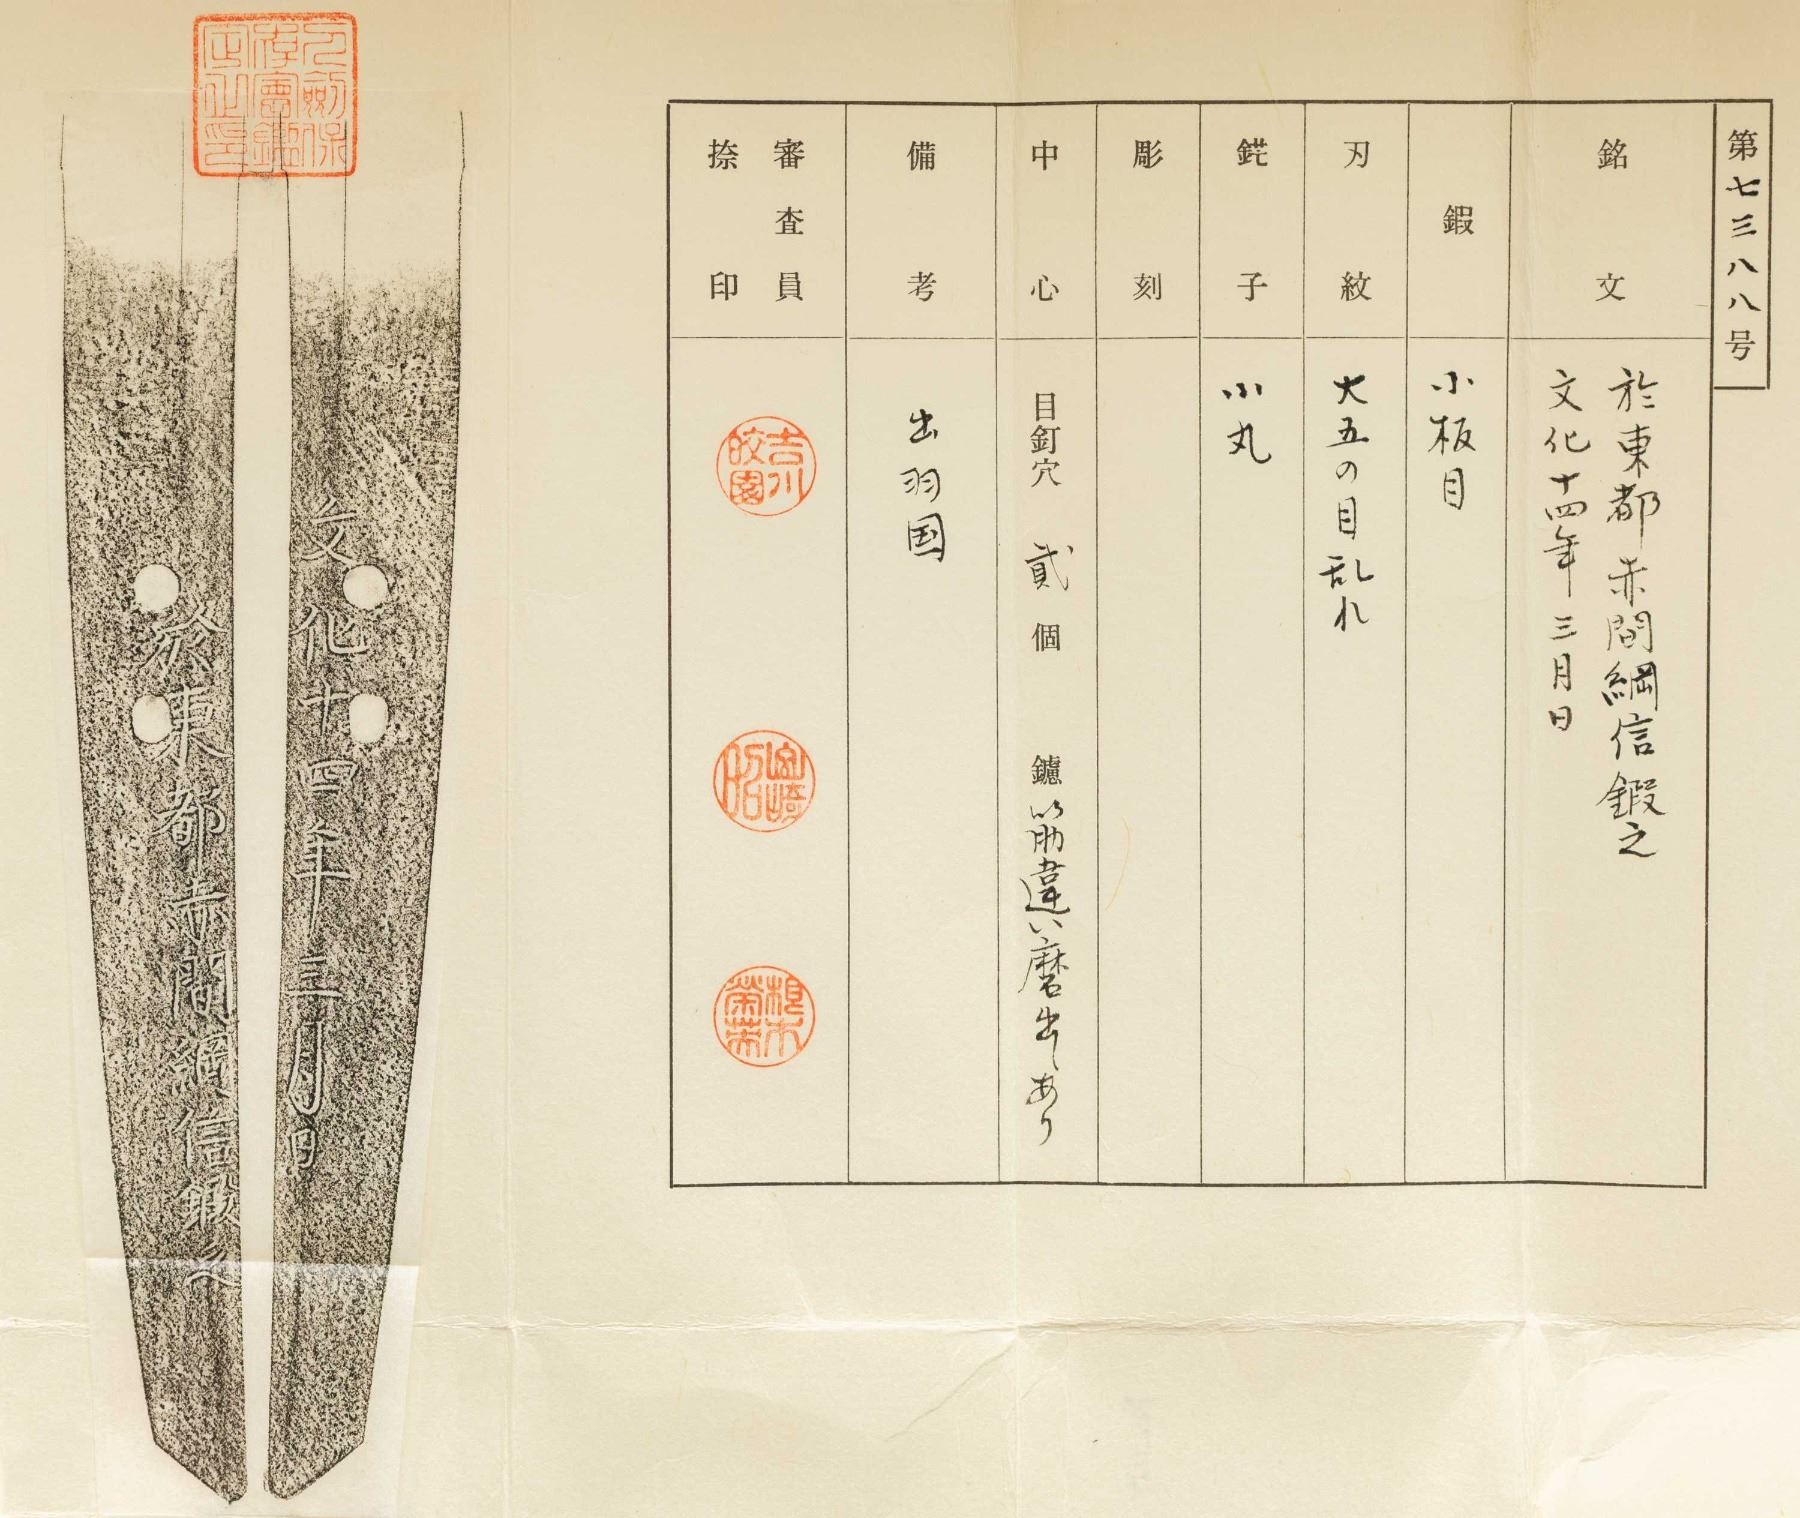 第七三八八号
銘文
於東都赤間綱信鍛之
文化十四年三月日
鍜
小板目
刃紋
大五の目乱れ
鋩子
小丸
彫刻
中心
目釘穴 貳個 鑢 筋違い磨出しあり
備考
出羽国
審査員
捺印
吉川皎園
根本
文化十四年三月日
於東都赤間綱信鍛之